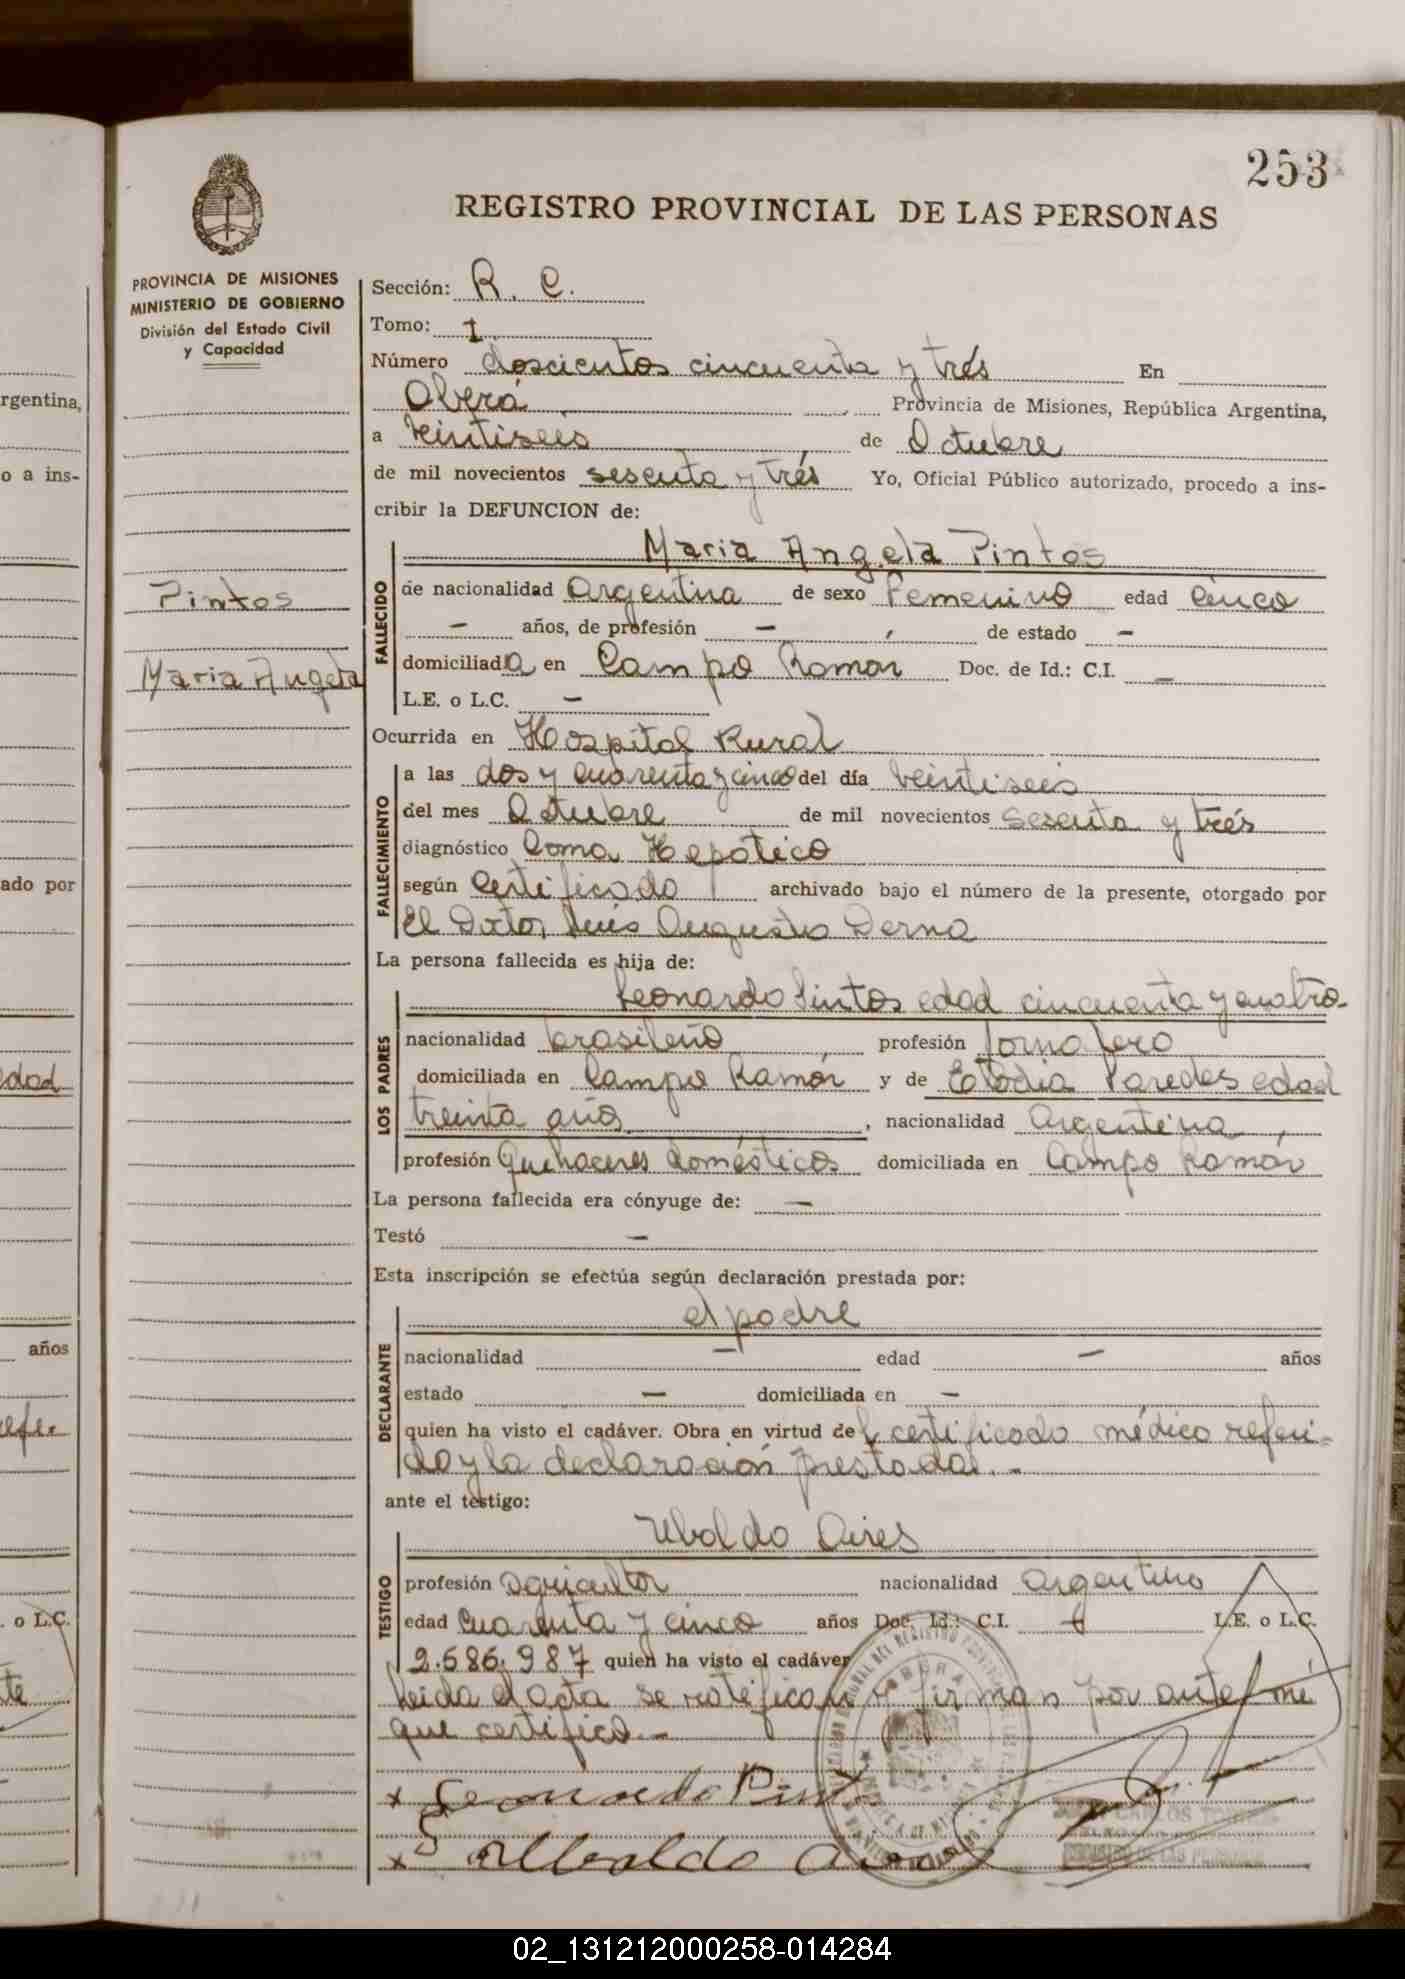 253
REGISTRO PROVINCIAL DE LAS PERSONAS
PROVINCIA DE MISIONES
MINISTERIO DE GOBIERNO
División del Estado Civil
y Capacidad
Pintos
Maria Angela
Sección: R. C.
Tomo: I
Número doscientos cincuenta y trés En
Oberá Provincia de Misiones, República Argentina,
a veintiseis de Octubre
de mil novecientos sesenta y trés Yo, Oficial Público autorizado, procedo a ins-
cribir la DEFUNCION de:
FALLECIDO
Maria Angela Pintos
de nacionalidad Argentina de sexo Femenino edad Cinco
- años, de profesión - de estado -
domiciliada en Campo Ramón Doc. de Id.: C.I. -
L.E. o L.C. -
Ocurrida en Hospital Rural
FALLECIMIENTO
a las dos y cuarenta y cinco del día veintiseis
del mes Octubre de mil novecientos sesenta y trés
diagnóstico Coma Hepático
según Certificado archivado bajo el número de la presente, otorgado por
El Doctor Luis Augusto Derna
La persona fallecida es hija de:
LOS PADRES
Leonardo Pintos edad cincuenta y cuatro-
nacionalidad brasileño profesión Jornalero
domiciliada en Campo Ramón y de Elodia Paredes edad
treinta años, nacionalidad Argentina,
profesión Quehaceres domésticos domiciliada en Campo Ramón
La persona fallecida era cónyuge de: -
Testó -
Esta inscripción se efectúa según declaración prestada por:
DECLARANTE
el padre
nacionalidad - edad - años
estado - domiciliada en -
quien ha visto el cadáver. Obra en virtud del certificado médico referi-
do y la declaración prestada.-
ante el testigo:
TESTIGO
Ubaldo Aires
profesión Agricultor nacionalidad argentino
edad Cuarenta y cinco años Doc. Id.: C.I. L.E. o L.C.
2.586.987 quien ha visto el cadáver
Leida el acta se ratifican y firman por ante mi
que certifico.-
x Leonardo Pintos
x Ubaldo Aires
rgentina,
o a ins-
ado por
edad
años
o L.C.
02_131212000258-014284